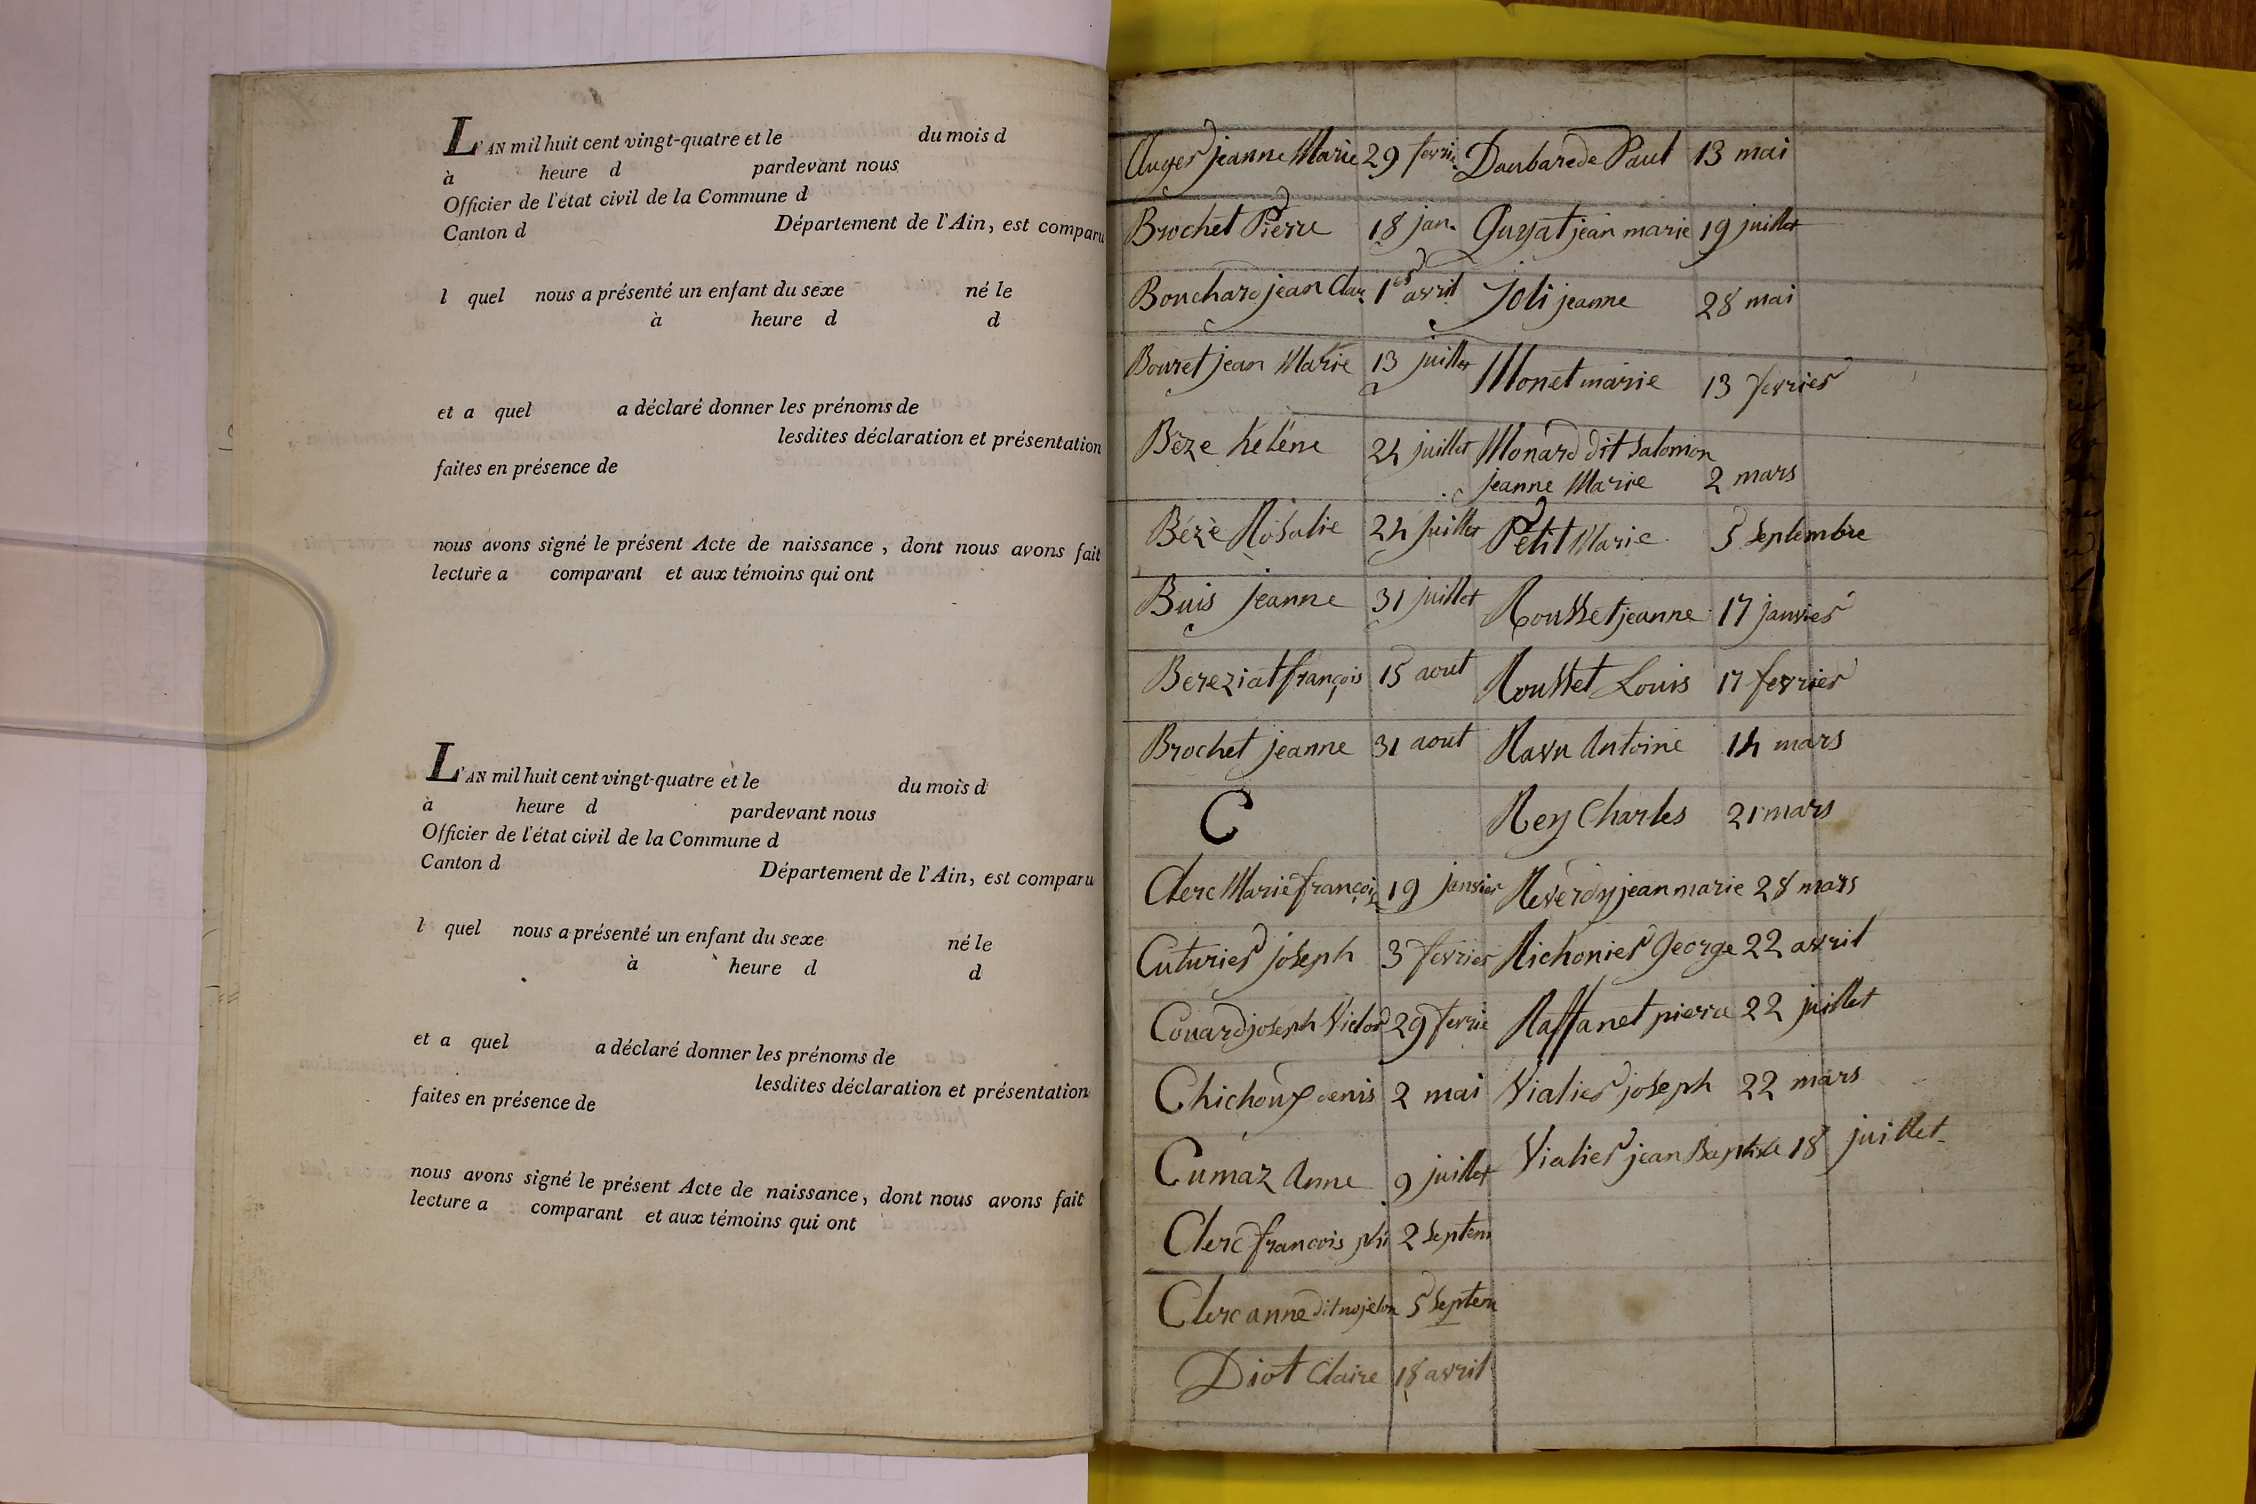 L'AN mil huit cent vingt-quatre et le du mois d
à heure d pardevant nous
Officier de l'état civil de la Commune d
Canton d Département de l'Ain, est comparu
l quel nous a présenté un enfant du sexe né le
à heure d d
et a quel a déclaré donner les prénoms de
lesdites déclaration et présentation
faites en présence de
nous avons signé le présent Acte de naissance, dont nous avons fait
lecture a comparant et aux témoins qui ont
L'AN mil huit cent vingt-quatre et le du mois d
à heure d pardevant nous
Officier de l'état civil de la Commune d
Canton d Département de l'Ain, est comparu
l quel nous a présenté un enfant du sexe né le
à heure d d
et a quel a déclaré donner les prénoms de
lesdites déclaration et présentation
faites en présence de
nous avons signé le présent Acte de naissance, dont nous avons fait
lecture a comparant et aux témoins qui ont
Auger jeanne Marie 29 fevrie
Brochet Pierre 18 jan.
Bouchard jean Clau 1er avril
Bouret jean Marie 13 juillet
Bèze heléne 24 juillet
Béze Rosalie 24 juillet
Buis jeanne 31 juillet
Bereziat françois 15 aout
Brochet jeanne 31 aout
C
Clerc Marie françoise 19 janvier
Cuturier joseph 3 fevrier
Couard joseph Victor 29 fevrie
Chichoux denis 2 mai
Cumaz Anne 9 juillet
Clerc francois phi 2 septem
Clerc anne dit 5 septem
Diot Claire 18 avril
Daubarede Paul 13 mai
Guyat jean marie 19 juillet
Joli jeanne 28 mai
Monet marie 13 fevrier
Monard dit Salomon
jeanne Marie 2 mars
Petit Marie 5 septembre
Rousset jeanne 17 janvier
Rousset Louis 17 fevrier
Ravu Antoine 14 mars
Rey Charles 21 mars
Reverdy jean marie 28 mars
Richonier George 22 avril
Raffanet pierre 22 juillet
Vialier joseph 22 mars
Vialier jean Baptiste 18 juillet